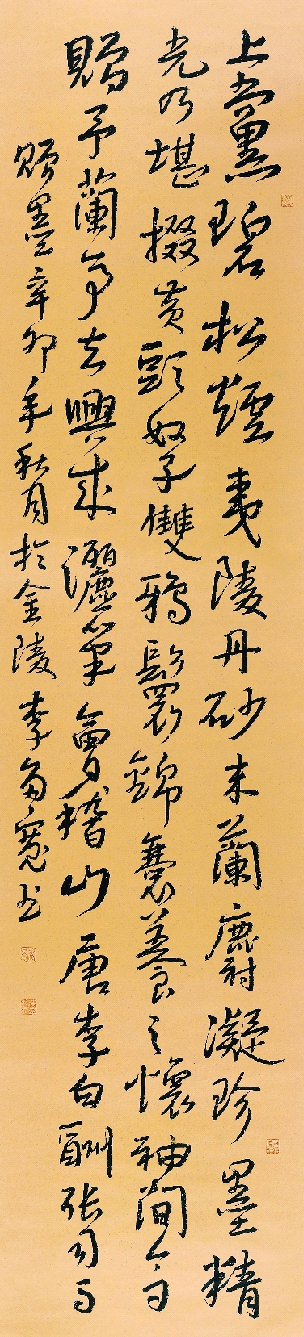 上黨碧松煙夷陵丹砂末蘭麝凝珍墨精
光乃堪掇黃頭奴子雙鴉鬟錦囊養之懷袖間今日
贈予蘭亭去興來灑筆會稽山唐李白酬张司马
贈墨辛卯年秋月於金陵李